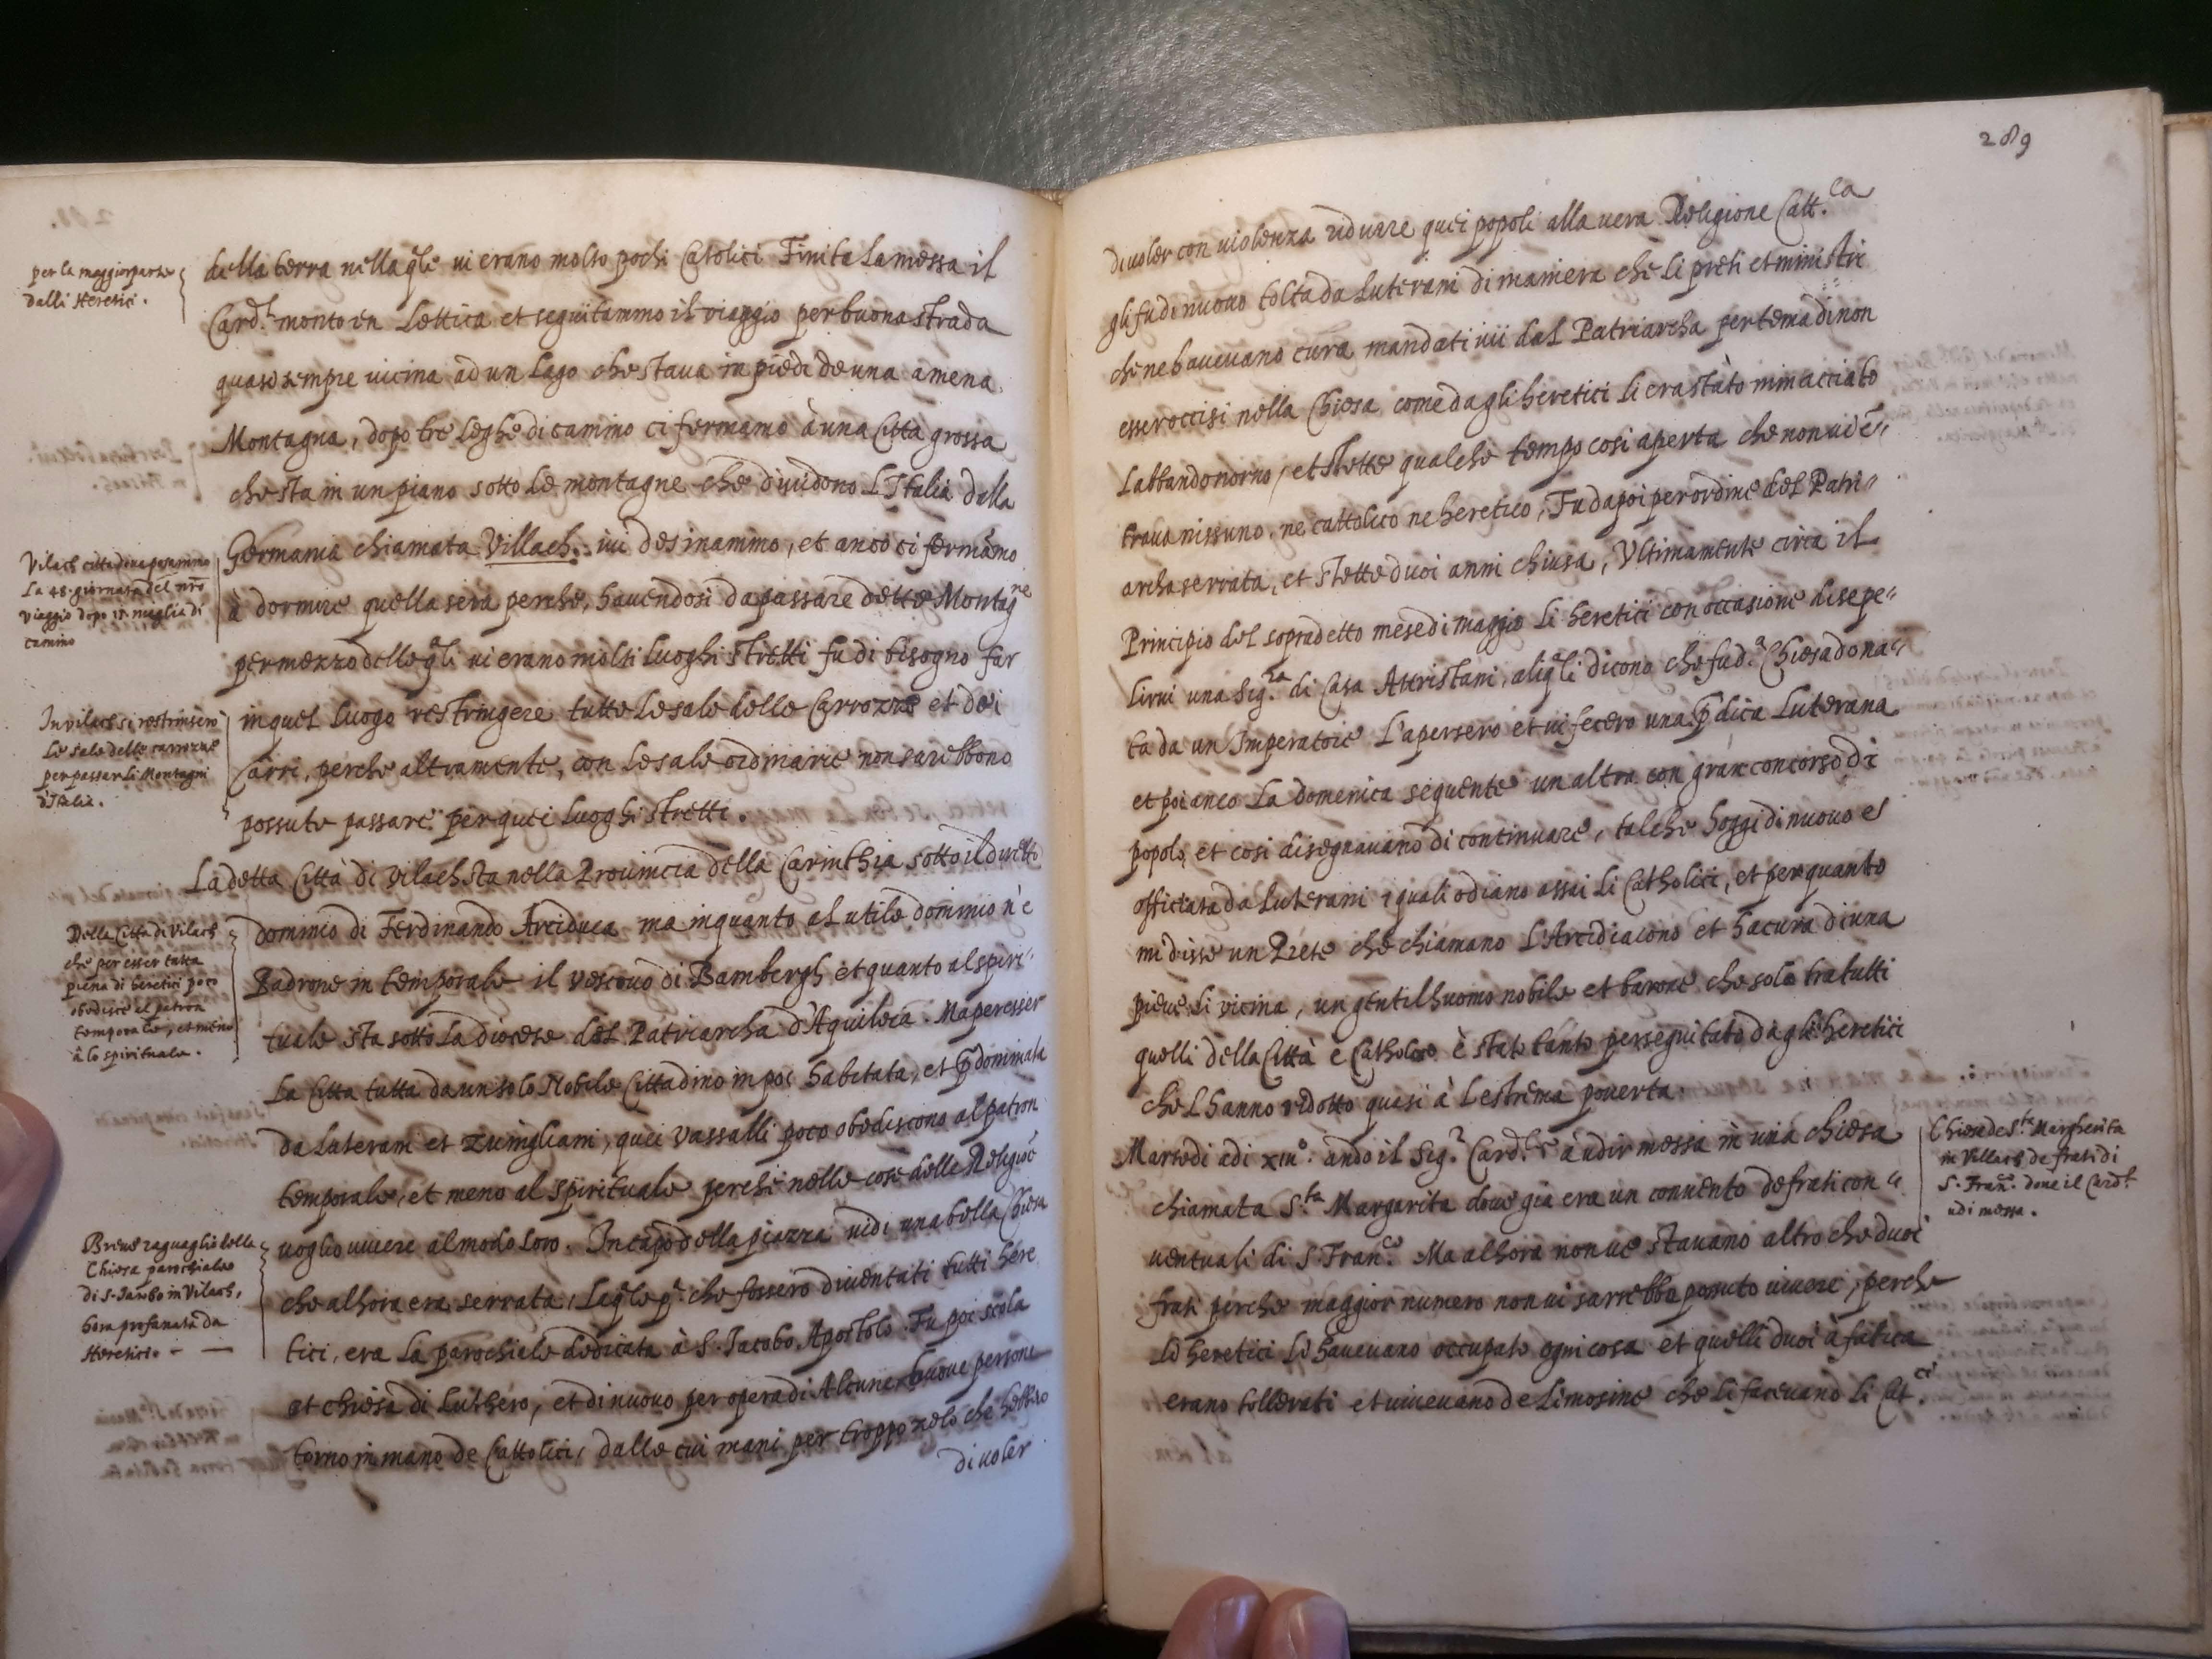 per la maggior parte
dalli Heretici.
della terra nella qle vi erano molto pochi Catolici Finita la messa il
Card.l monto in Lettica et seguitammo il viaggio per buona strada
quasi sempre vicina ad un Lago che stava in piedi de una amena
Montagna, dopo tre leghe di camino ci fermamo à una Citta grossa
che sta in un piano sotto le montagne che dividono L'Italia dalla
Germania chiamata Villach. ivi desinammo, et anco ci fermamo
à dormire quella sera perche, havendosi da passare dette Montagne
per mezzo delle qli vi erano molti luoghi stretti fu di bisogno far
in quel luogo restringere tutte le sale delle Carrozze et dei
Carri, perche altramente, con le sale ordinarie non sarebbono
possute passare per quei luoghi stretti.
Vilach citta dova posammo
La 48. giornata del nrō
viaggio dopo 15. miglia di
camino
In vilach si restrinsero
le sale delle carrozze
per passar li Montagni
d'Italia.
La detta Città di Vilach sta nella Provincia della Carinthia sotto il diretto
dominio di Ferdinando Arciduca ma in quanto al utile dominio n'è
Padrone in temporale il Vescovo di Bambergh et quanto al spiri-
tuale sta sotto la diocese del Patriarcha d'Aquileia. Ma per esser
La Citta tutta da un solo Nobile Cittadino in poi habitata, et p̄dominata
da Luterani et Zuingliani, quei Vassalli poco obediscono al patron
temporale, et meno al spirituale perche nelle cose della Religiōe
voglio vivere al modo loro. In capo della piazza vidi una bella Chiesa
che alhora era serrata, La qle p.a che fossero diventati tutti here
tici, era la parochiale dedicata à S. Iacobo Apostolo. Fu poi scola
et chiesa di Luthero, et di nuovo per opera di Alcune buone persone
torno in mano de Cattolici, dalle cui mani per troppo zelo che hebbero
di voler
Della Citta di Vilach
che per esser tutta
piena di heretici poco
obedisce al patron
temporale, et meno
à lo spirituale.
Breve raguaglio della
Chiesa parochiale
di S. Iacobo in Vilach,
hora profanata da
Heretici. - —
289
di voler con violenza ridurre quei popoli alla vera Religione Catt.ca
gli fu di nuovo tolta da Luterani di maniera che li preti et ministri
che ne havevano cura mandati ivi dal Patriarcha per tema di non
esser occisi nella Chiesa come dagli heretici li era stato minacciato
L'abbandonorno, et stette qualche tempo cosi aperta che non vi ē-
trava nissuno, ne cattolico ne heretico, Fu dapoi per ordine del Patri-
archa serrata, et stette duoi anni chiusa, Ultimamente circa il
Principio del sopradetto mese di maggio li heretici con occasione di sepe-
lirvi una Sig.ra di Casa Atteristani, a li qli dicono che fu d.a Chiesa dona-
ta da un Imperatore L'apersero et vi fecero una p̄dica Luterana
et poi anco la domenica sequente un altra con gran concorso di
popolo, et cosi disegnavano di continuare, talche hoggi di nuovo e
officiata da Luterani i quali odiano assai li Catholici, et per quanto
mi disse un Prete che chiamano L'Arcidiacono et ha cura di una
pieve li vicina, un gentilhuomo nobile et barone che solo tra tutti
quelli della Città è Catholico è stato tanto perseguitato dagli heretici
che L'hanno ridotto quasi à l'estrema poverta.
Martedi adi xiii.o andò il Sig.r Card.le à udir messa in una chiesa
chiamata S.ta Margarita dove gia era un convento de frati con-
ventuali di S. Fran.co Ma alhora non ve stavano altro che duoi
frati perche maggior numero non vi sarrebbe possuto vivere, perche
Li heretici li havevano occupato ogni cosa et quelli duoi à fatica
erano tollerati et vivevano de Limosine che li facevano li Cat.ci
Chiesa de S.ta Margherita
in Villach de frati di
S. Fran.co dove il Card.l
udi messa.